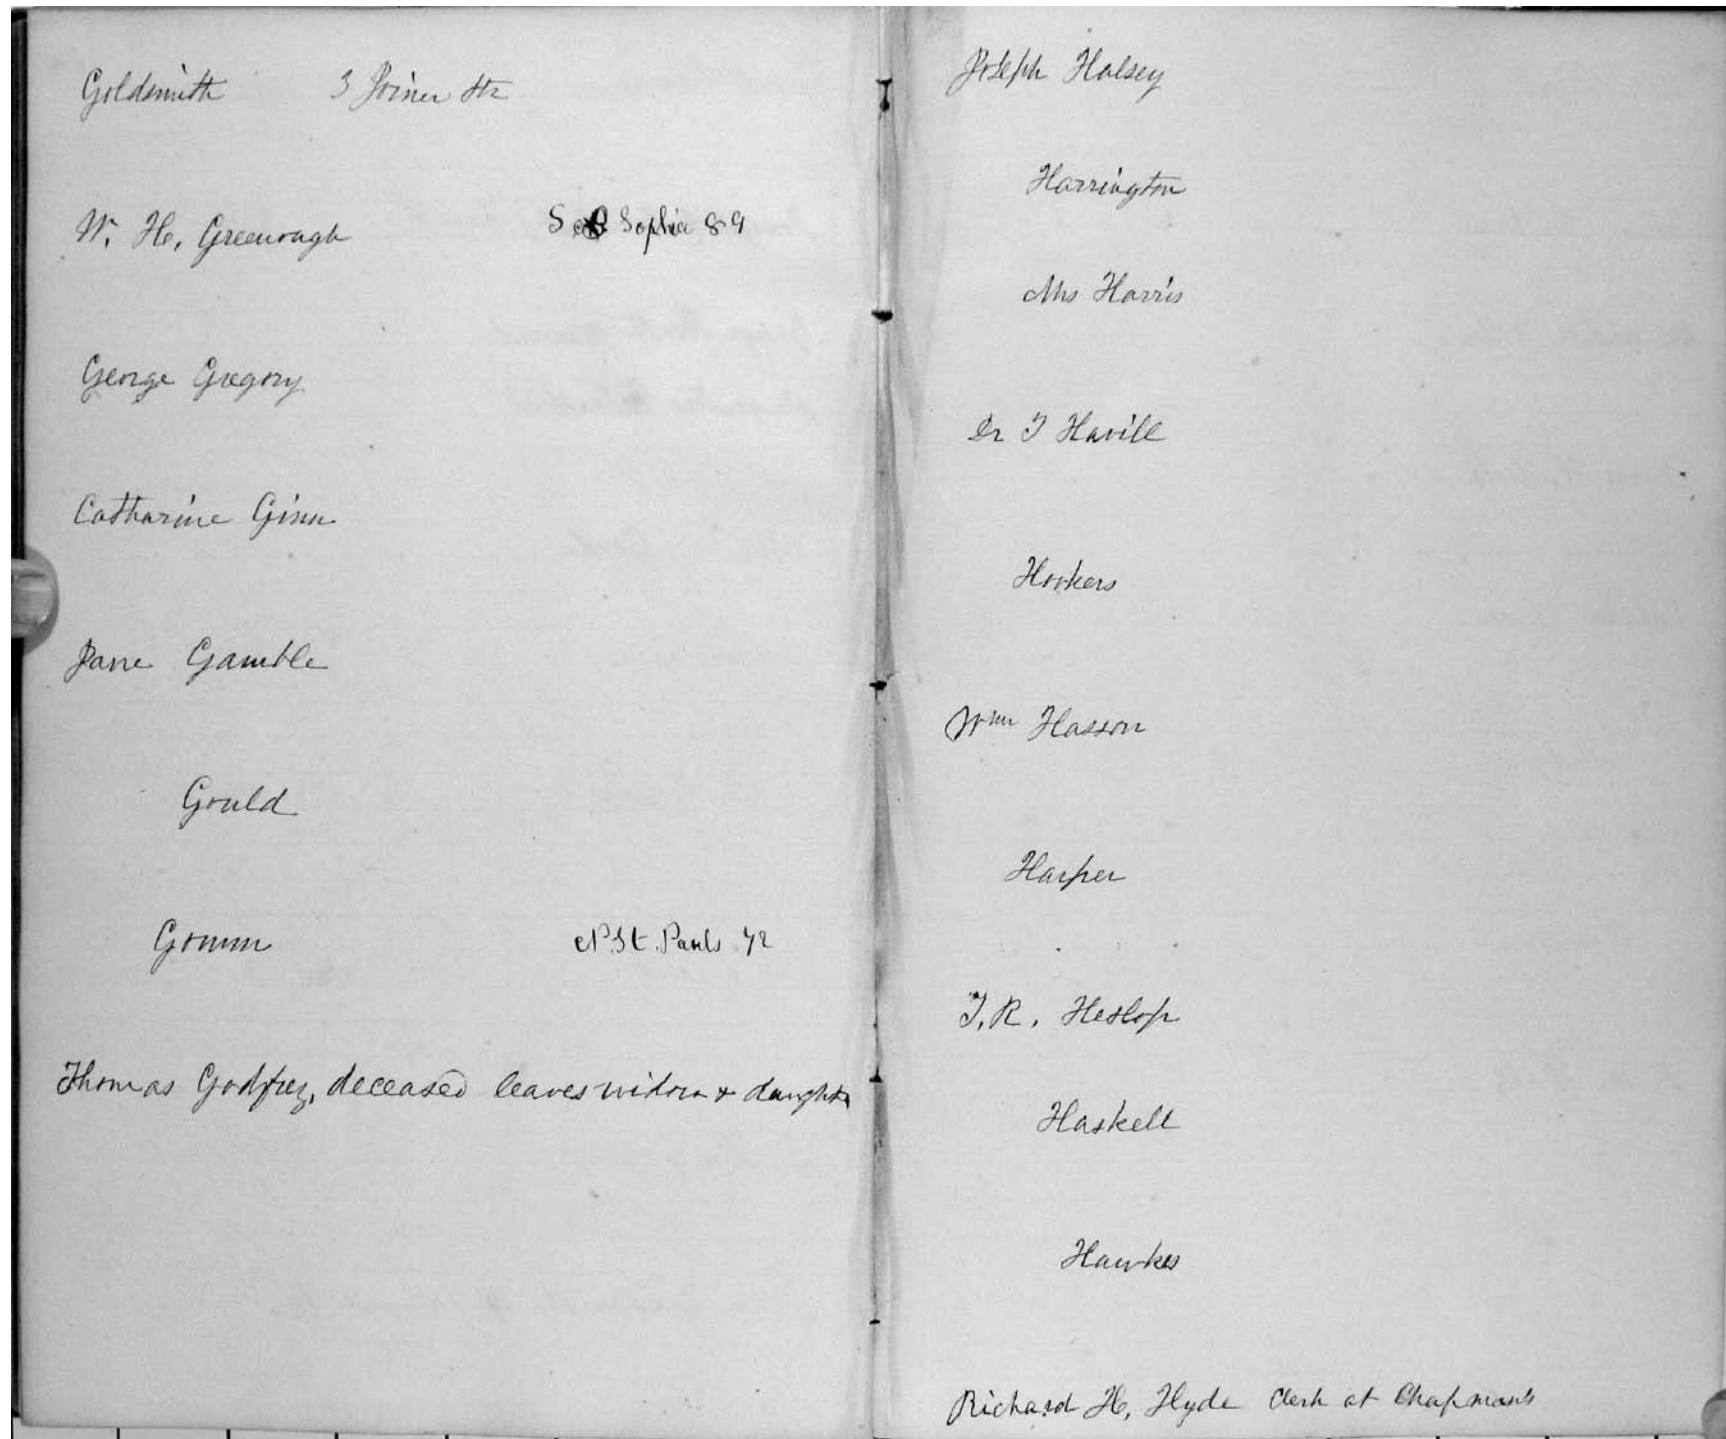 Goldsmith 3 Joiner Str
W. H. Greenough S Sophia 89
George Gregory
Catharine Ginn
Jane Gamble
Gould
Gomm N St. Pauls 42
Thomas Godfrey, deceased leaves widow & daughter
Joseph Halsey
Harrington
Mrs Harris
Dr T Havill
Hookers
Wm Hasson
Harper
T. R. Heslop
Haskell
Hawkes
Richard H. Hyde Clerk at Chapman's